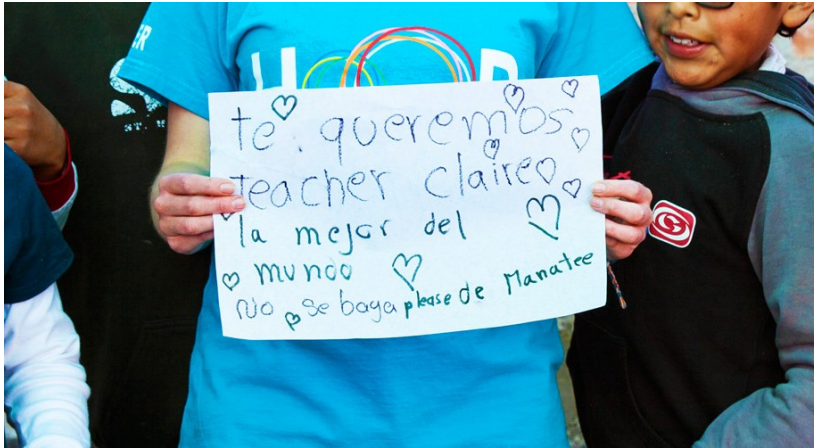 te queremos
teacher claire
la mejor del
mundo
No se baya please de Manatee